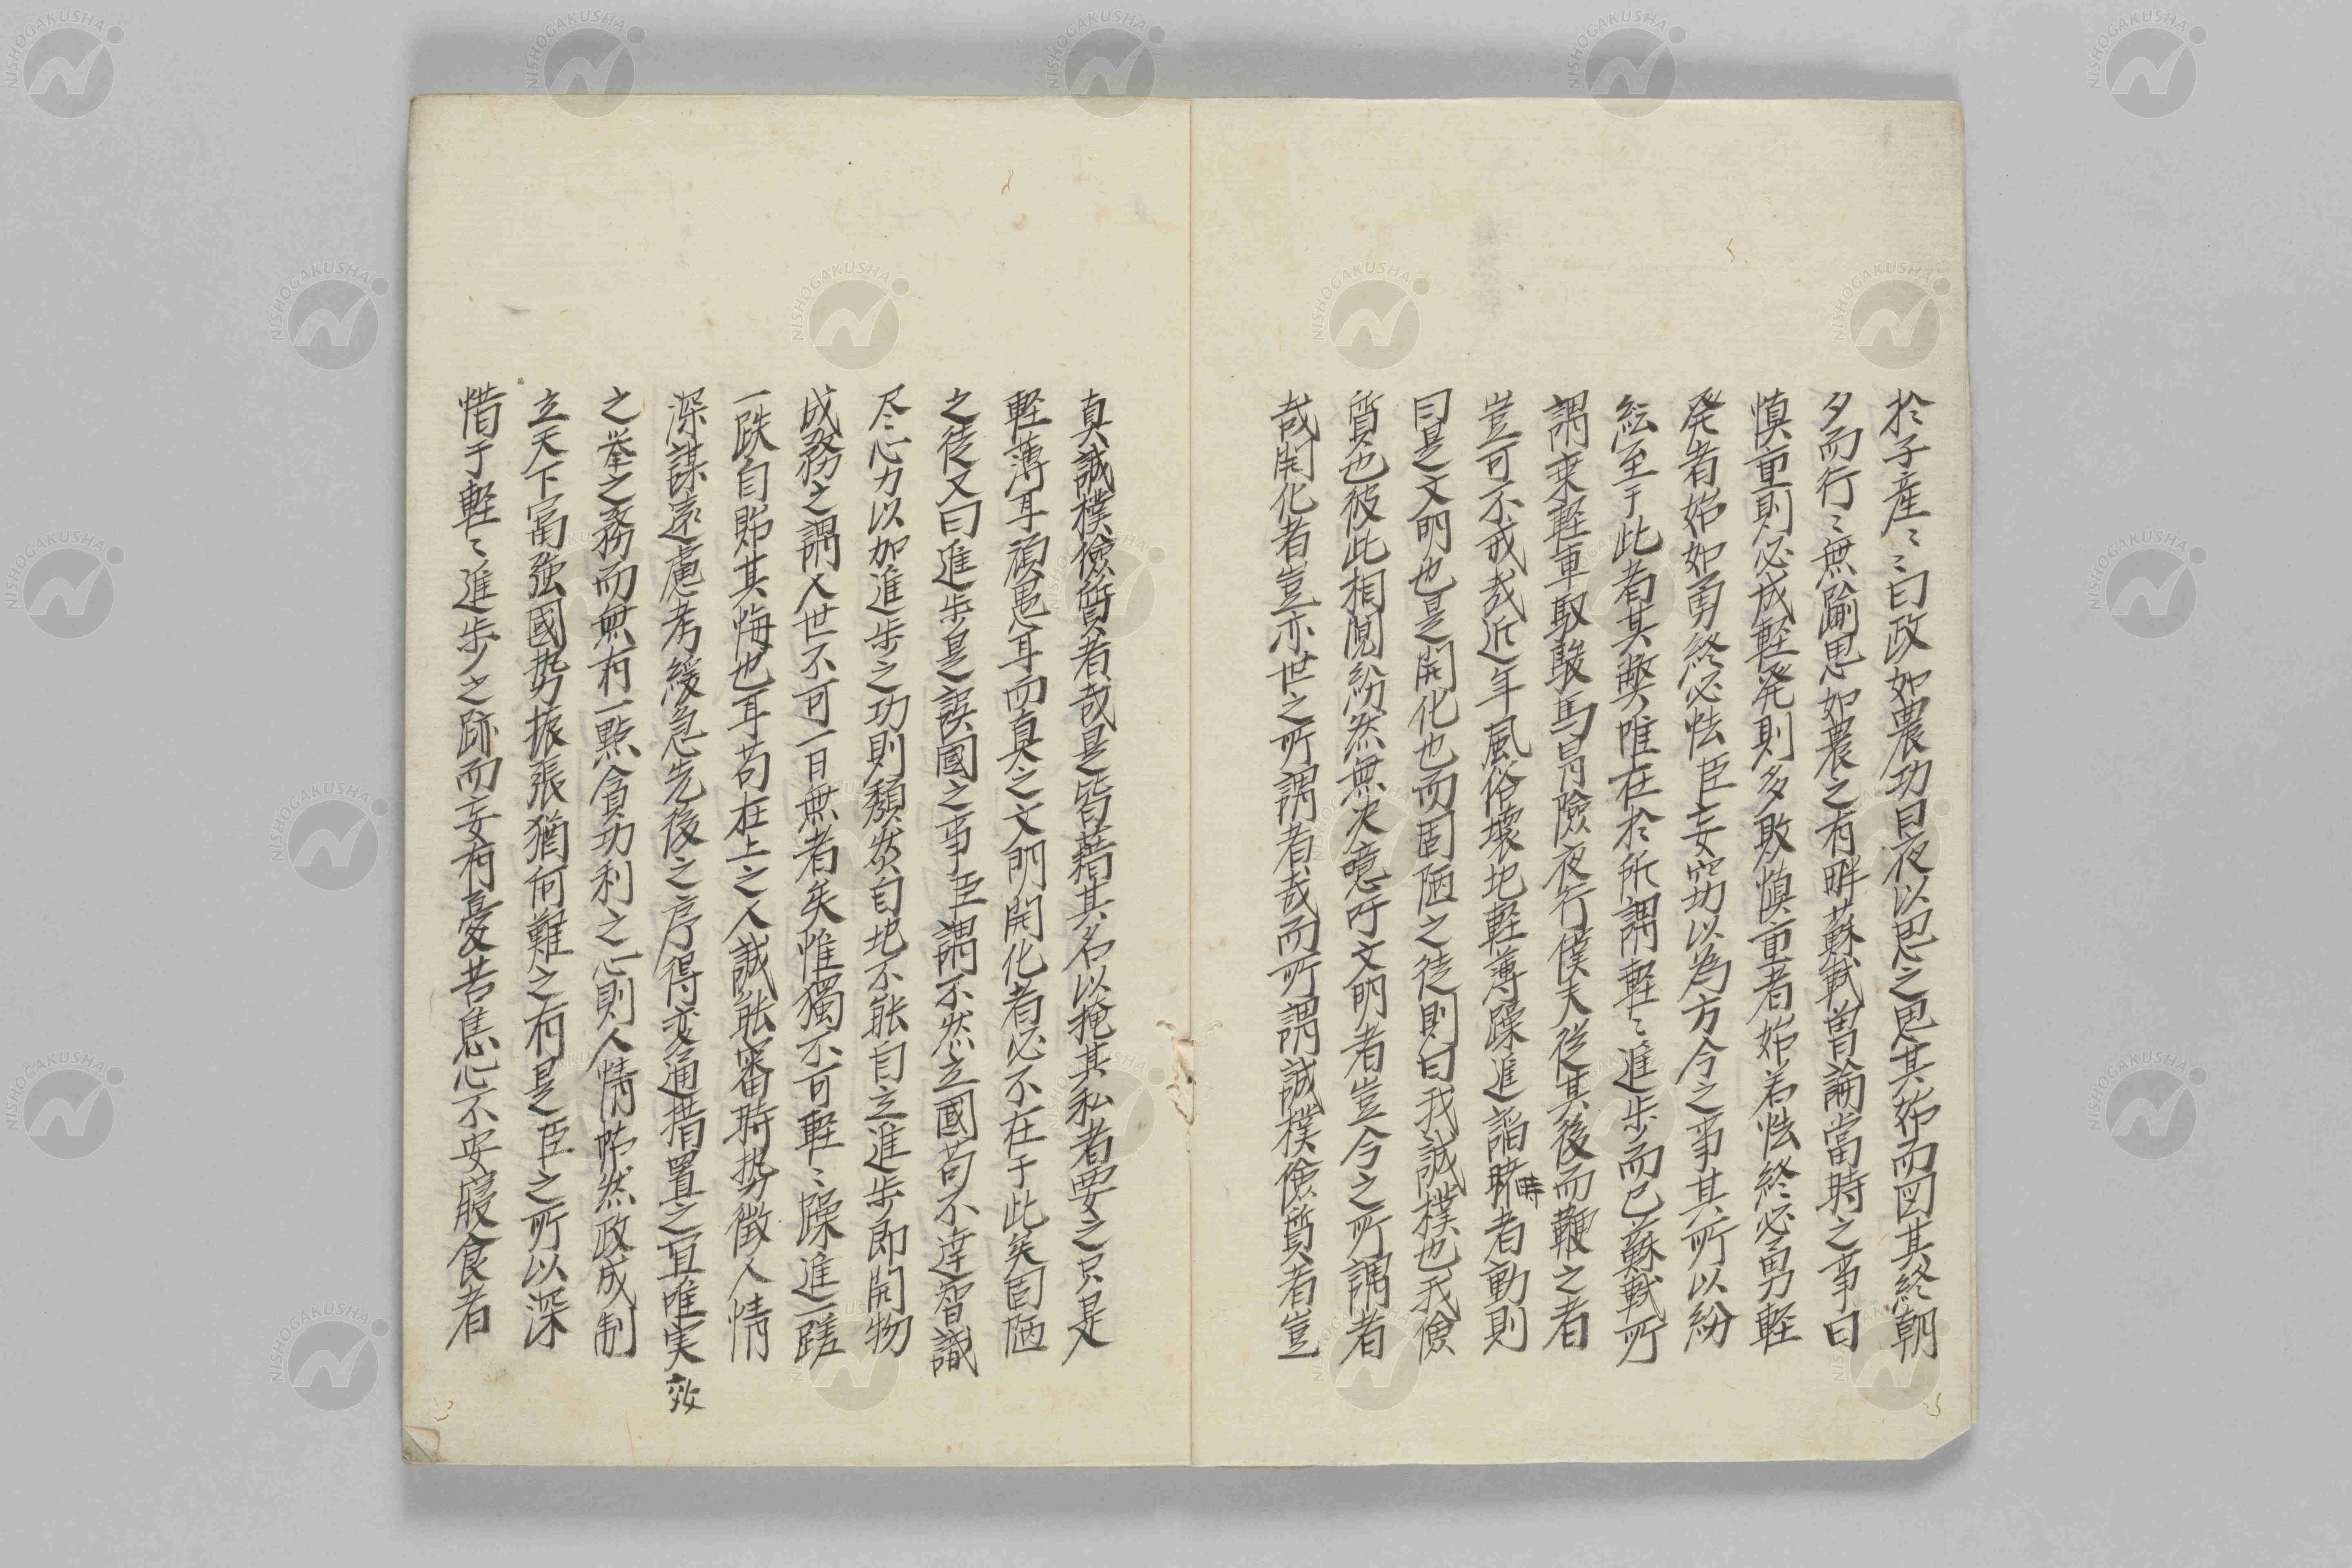 於子産〻〻曰政如農功日夜以思之思其始而図其終朝
夕而行〻無踰思如農之有畔蘇軾曽論當時之事曰
慎重則必成軽発則多敗慎重者始若怯終必勇軽
発者始如勇終必怯臣妄窃以為方今之事其所以紛
紜至于此者其弊唯在於所謂軽〻進歩而已蘇軾所
謂乗軽車馭駿馬冐険夜行僕夫従其後而鞭之者
豈可不戒哉近年風俗壊地軽薄躁進謟時者動則
曰是文明也是開化也而固陋之徒則曰我誠樸也我儉
質也彼此相鬩紛然無决噫吁文明者豈今之所謂者
哉開化者豈亦世之所謂者哉而所謂誠樸儉質者豈
真誠樸儉質者哉是皆藉其名以掩其私者要之只是
軽薄耳頑愚耳而真之文明開化者必不在于此矣固陋
之徒又曰進歩是誤國之事臣謂不然立國苟不達智識
尽心力以加進歩之功則頽然自地不能自立進歩即開物
成務之謂人世不可一日無者矣惟獨不可軽〻躁進一蹉
一跌自貽其悔也耳苟在上之人誠能審時勢徴人情
深謀遠慮考緩急先後之序得変通措置之宜唯実效
之挙之務而無有一點貪功利之心則人情怗然政成制
立天下富強國勢振張猶何難之有是臣之所以深
惜于軽〻進歩之跡而妄有憂苦焦心不安寢食者
NISHOGAKUSHA